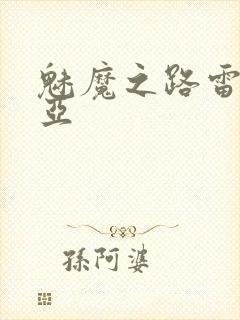 魅魔之路雷
亞
孫阿婆